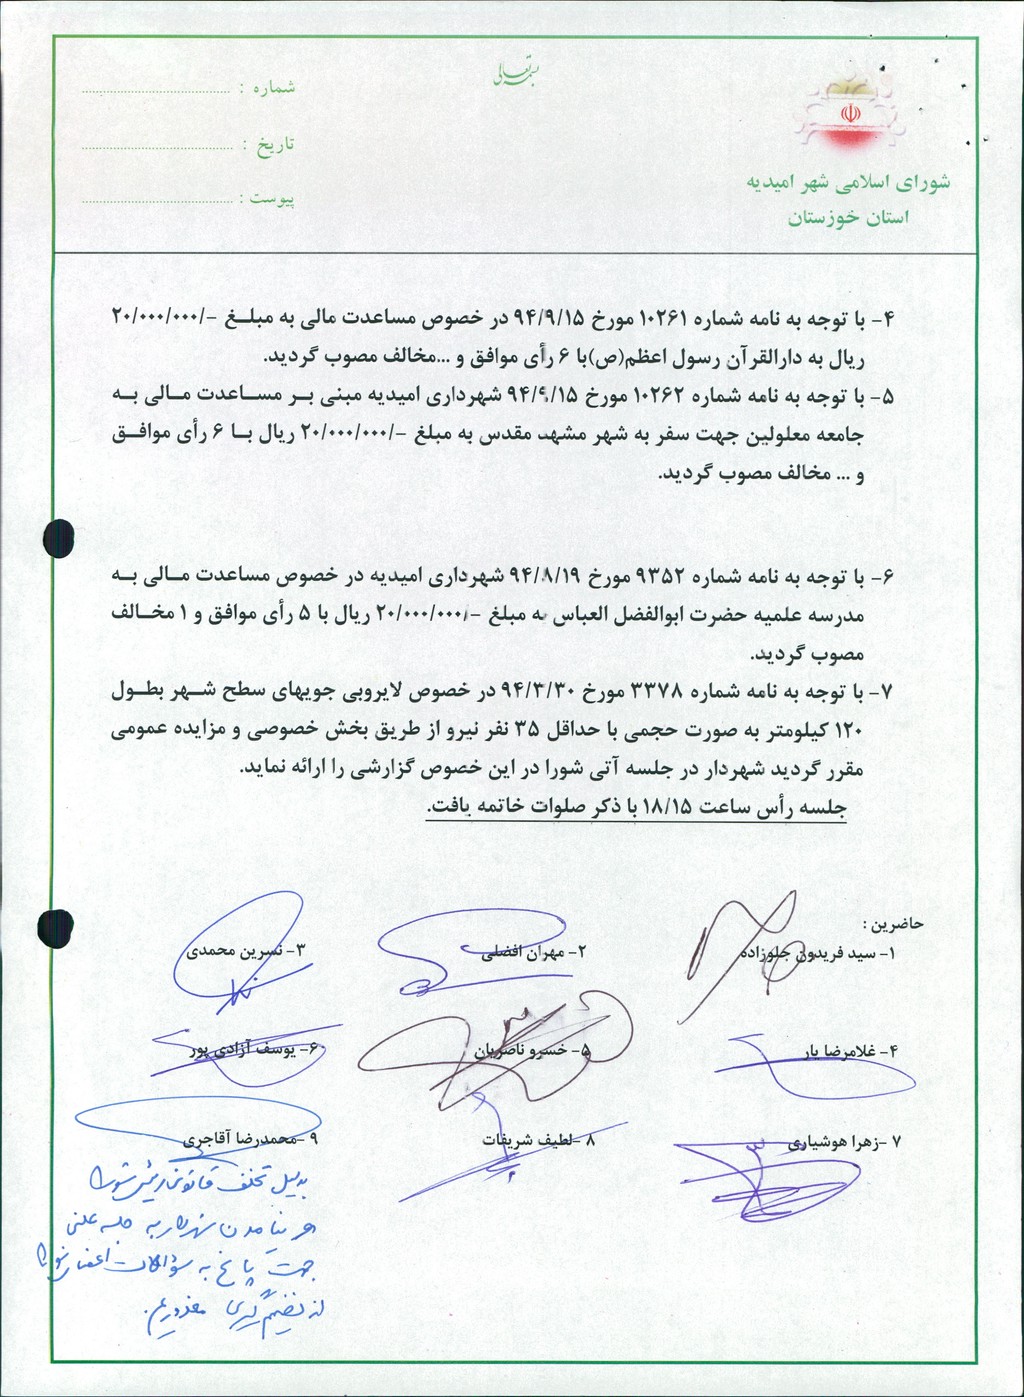 بسمه تعالی
شورای اسلامی شهر امیدیه
استان خوزستان
شماره : ........................
تاریخ : ........................
پیوست : ........................
۴- با توجه به نامه شماره ۱۰۲۶۱ مورخ ۹۴/۹/۱۵ در خصوص مساعدت مالی به مبلغ -/۲۰/۰۰۰/۰۰۰
ریال به دارالقرآن رسول اعظم(ص)با ۶ رأی موافق و ...مخالف مصوب گردید.
۵- با توجه به نامه شماره ۱۰۲۶۲ مورخ ۹۴/۹/۱۵ شهرداری امیدیه مبنی بر مساعدت مالی به
جامعه معلولین جهت سفر به شهر مشهد مقدس به مبلغ -/۲۰/۰۰۰/۰۰۰ ریال با ۶ رأی موافق
و ... مخالف مصوب گردید.
۶- با توجه به نامه شماره ۹۳۵۲ مورخ ۹۴/۸/۱۹ شهرداری امیدیه در خصوص مساعدت مالی به
مدرسه علمیه حضرت ابوالفضل العباس به مبلغ -/۲۰/۰۰۰/۰۰۰ ریال با ۵ رأی موافق و ۱ مخالف
مصوب گردید.
۷- با توجه به نامه شماره ۳۳۷۸ مورخ ۹۴/۳/۳۰ در خصوص لایروبی جویهای سطح شهر بطول
۱۲۰ کیلومتر به صورت حجمی با حداقل ۳۵ نفر نیرو از طریق بخش خصوصی و مزایده عمومی
مقرر گردید شهردار در جلسه آتی شورا در این خصوص گزارشی را ارائه نماید.
جلسه رأس ساعت ۱۸/۱۵ با ذکر صلوات خاتمه یافت.
حاضرین :
۱- سید فریدون جلوزاده
۲- مهران افضلی
۳- نسرین محمدی
۴- غلامرضا یار
۵- خسرو ناصریان
۶- یوسف آزادی پور
۷ -زهرا هوشیاری
۸ -لطیف شریفات
۹ -محمدرضا آقاجری
بدلیل تخلف قانونی رئیس شورا
در نیامدن شهردار به جلسه علنی
جهت پاسخ به سؤالات اعضای شورا
از تصمیم گیری معذوریم.